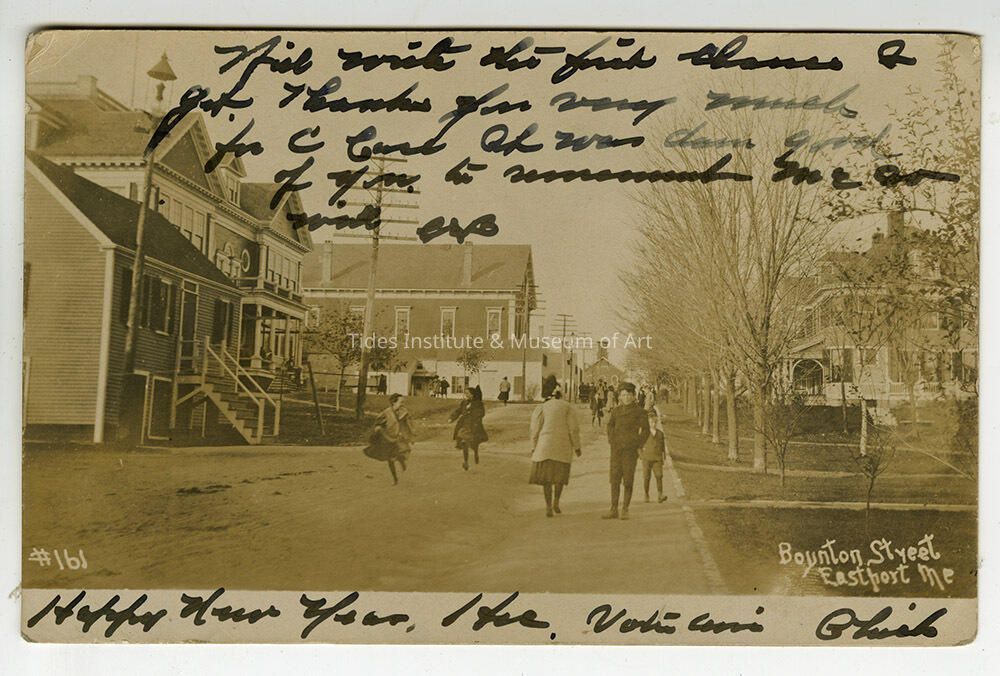 Will write the first chance I
get. Thanks for very much
for C Card It was dam good
of you. to remement Me as
will CRB
Tides Institute & Museum of Art
#161
Boynton Street
Eastport Me
Happy New Year,